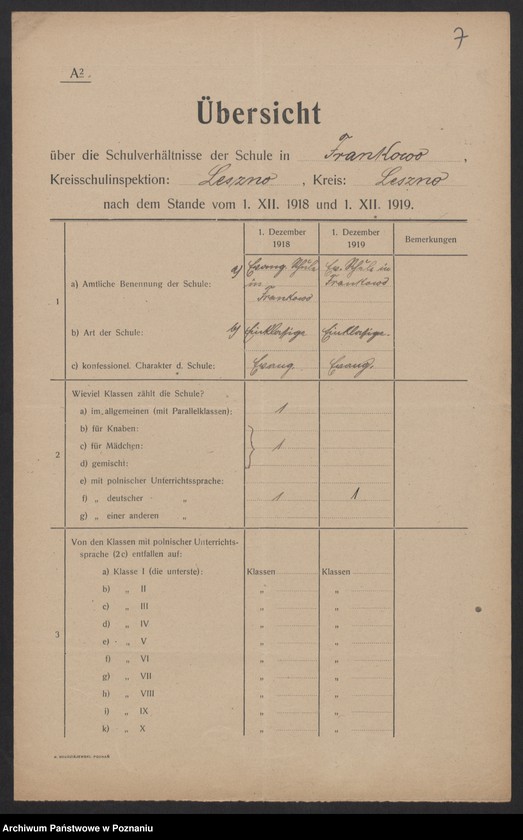 7
A2.
Übersicht
über die Schulverhältnisse der Schule in Frankowo,
Kreisschulinspektion: Leszno, Kreis: Leszno
nach dem Stande vom 1. XII. 1918 und 1. XII. 1919.
1. Dezember 1918 1. Dezember 1919 Bemerkungen
1
a) Amtliche Benennung der Schule: a) Evang. Schule in Frankowo Ev. Schule in Frankowo
b) Art der Schule: b) Einklassige Einklassige.
c) konfessionel. Charakter d. Schule: Evang. Evang.
2
Wieviel Klassen zählt die Schule?
a) im allgemeinen (mit Parallelklassen): 1
b) für Knaben:
c) für Mädchen: 1
d) gemischt:
e) mit polnischer Unterrichtssprache:
f) „ deutscher „ 1 1
g) „ einer anderen „
3
Von den Klassen mit polnischer Unterrichts-
sprache (2e) entfallen auf:
a) Klasse I (die unterste): Klassen Klassen
b) „ II „ „
c) „ III „ „
d) „ IV „ „
e) „ V „ „
f) „ VI „ „
g) „ VII „ „
h) „ VIII „ „
i) „ IX „ „
k) „ X „ „
Archiwum Państwowe w Poznaniu
szukajwarchiwach.pl